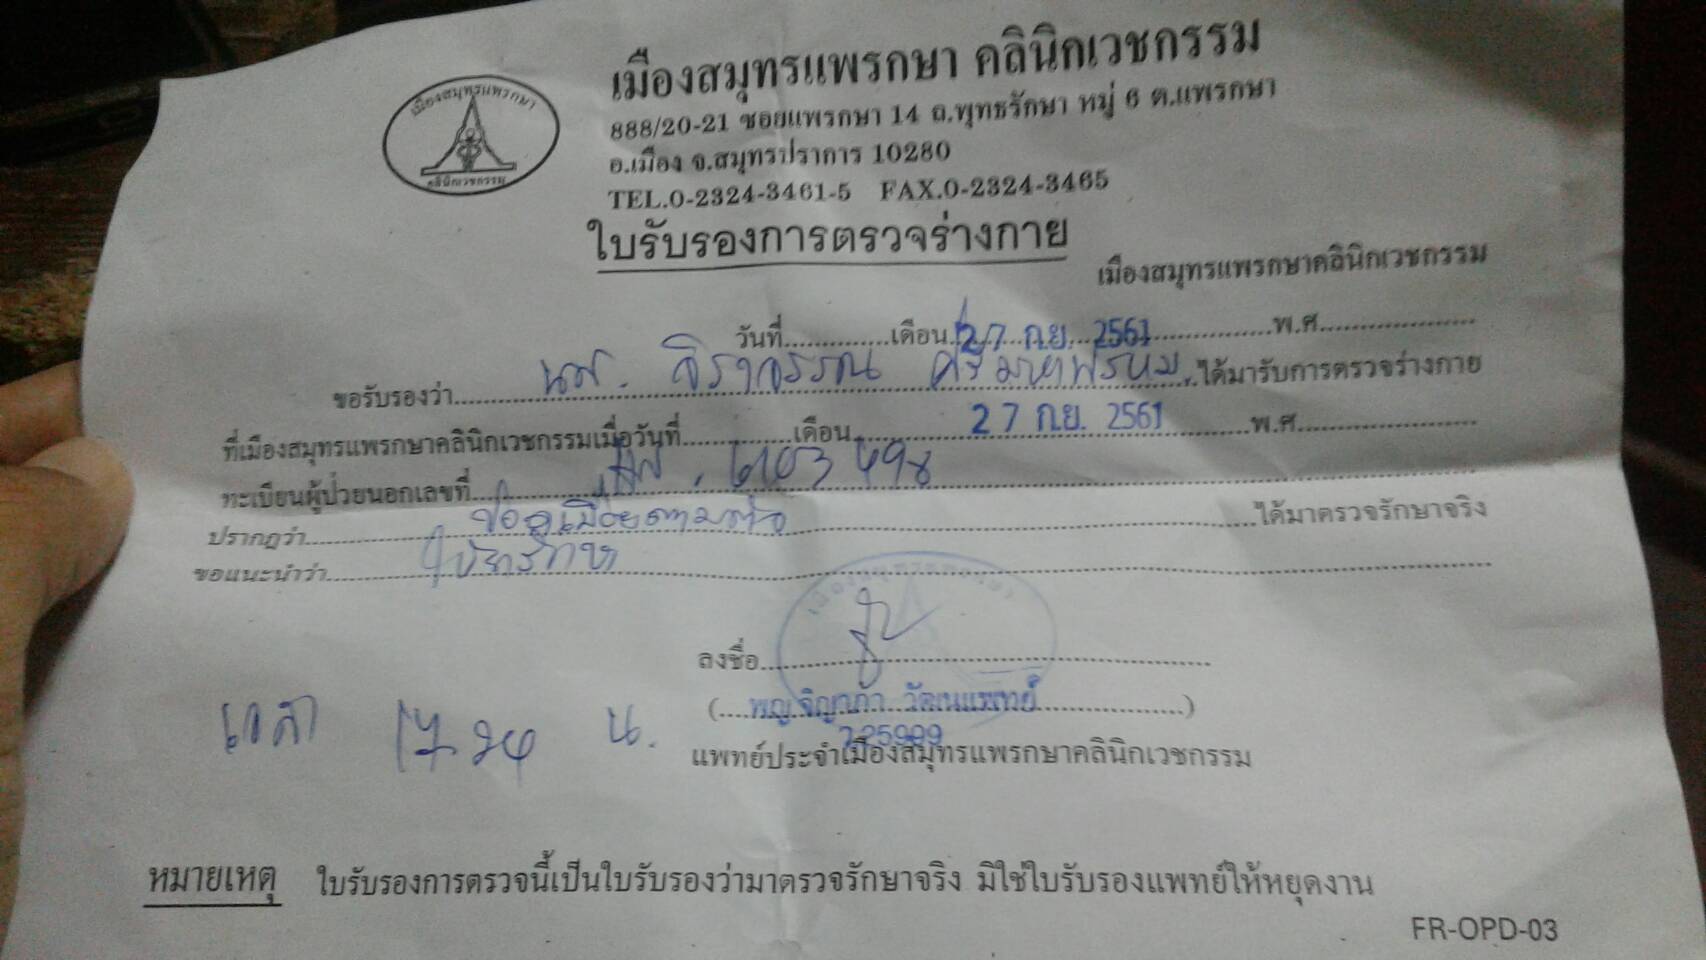 เมืองสมุทรแพรกษา
คลินิกเวชกรรม
เมืองสมุทรแพรกษา คลินิกเวชกรรม
888/20-21 ซอยแพรกษา 14 ถ.พุทธรักษา หมู่ 6 ต.แพรกษา
อ.เมือง จ.สมุทรปราการ 10280
TEL.0-2324-3461-5 FAX.0-2324-3465
ใบรับรองการตรวจร่างกาย
เมืองสมุทรแพรกษาคลินิกเวชกรรม
วันที่..............เดือน 27 ก.ย. 2561 พ.ศ.
ขอรับรองว่า นส. จิราวรรณ ศรีมหาพรหม ได้มารับการตรวจร่างกาย
ที่เมืองสมุทรแพรกษาคลินิกเวชกรรมเมื่อวันที่..............เดือน 27 ก.ย. 2561 พ.ศ.
ทะเบียนผู้ป่วยนอกเลขที่
ปรากฏว่า ได้มาตรวจรักษาจริง
ขอแนะนำว่า
เมืองสมุทรแพรกษา
ลงชื่อ
(....พญ.จิญาภา วัฒนแพทย์....)
ว.25909
แพทย์ประจำเมืองสมุทรแพรกษาคลินิกเวชกรรม
เวลา 17.24 น.
หมายเหตุ ใบรับรองการตรวจนี้เป็นใบรับรองว่ามาตรวจรักษาจริง มิใช่ใบรับรองแพทย์ให้หยุดงาน
FR-OPD-03